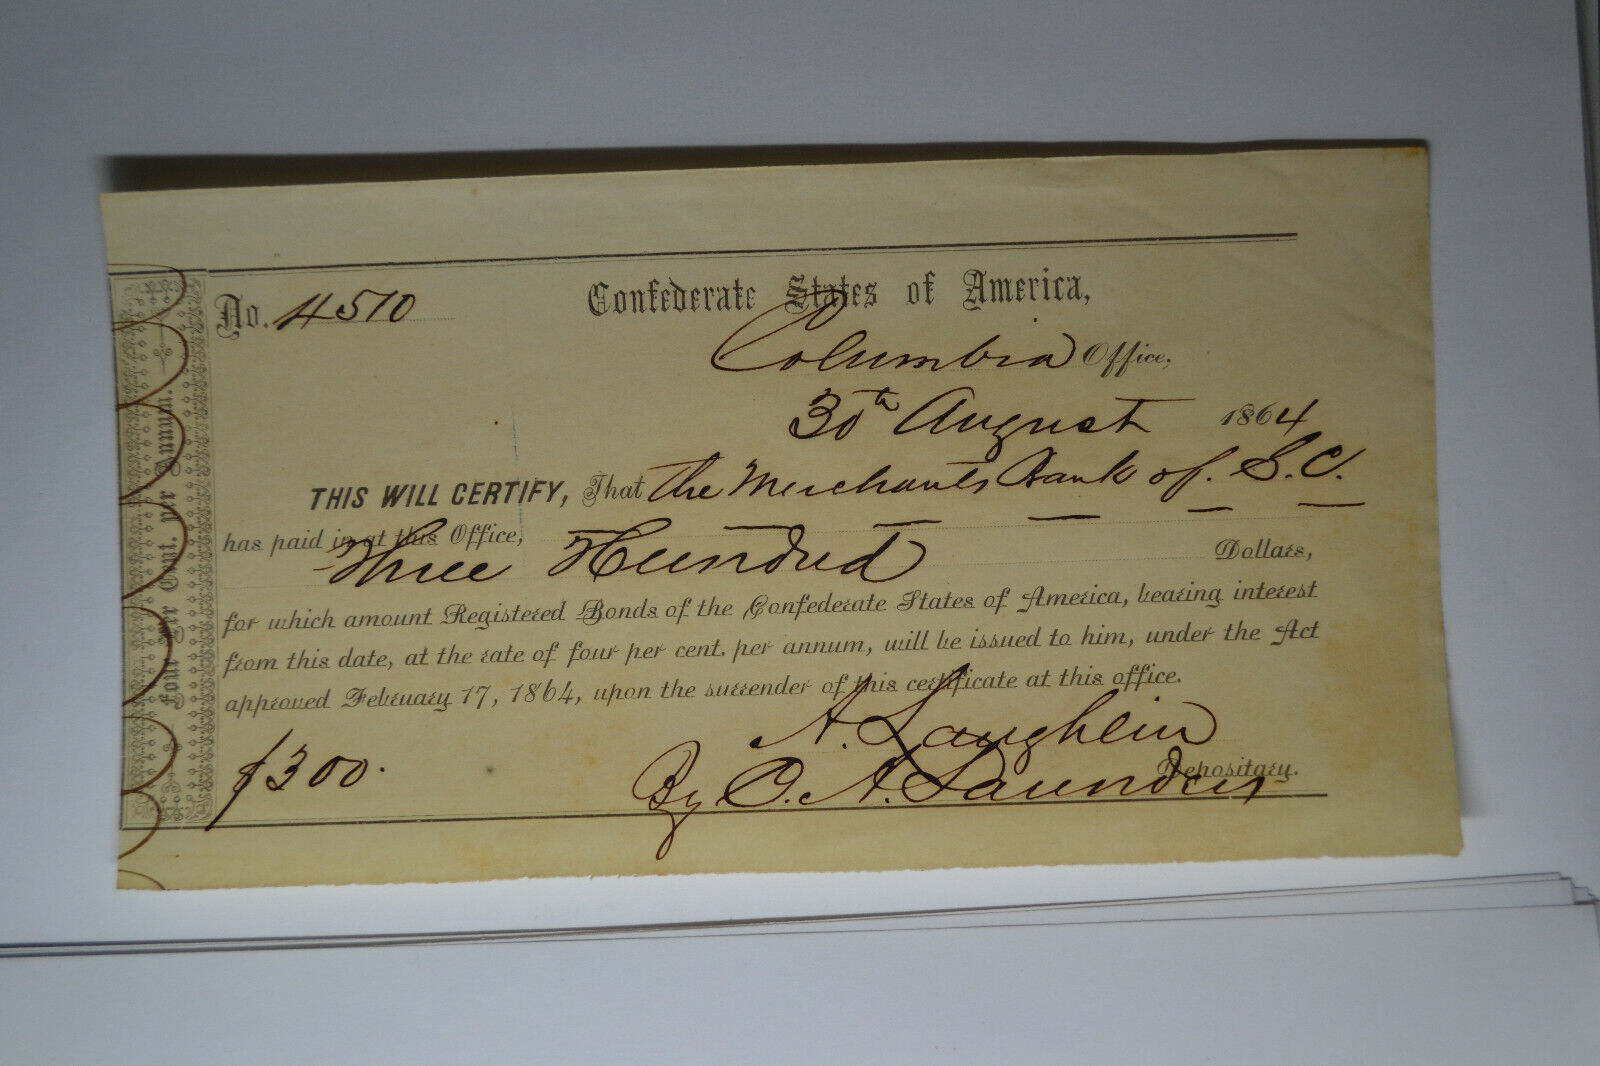 No. 4510
Confederate States of America,
Columbia Office,
30th August 1864
THIS WILL CERTIFY, That The Merchants Bank of. S.C.
has paid in at this Office,
Three Hundred Dollars,
for which amount Registered Bonds of the Confederate States of America, bearing interest
from this date, at the rate of four per cent. per annum, will be issued to him, under the Act
approved February 17, 1864, upon the surrender of this certificate at this office.
A. Laughlin
Depositary.
$300.
By O. A. Saunders
Four Per Cent. per Annum.